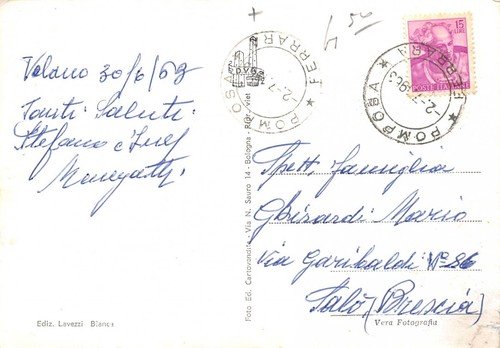 Volano 30/6/63
Tanti Saluti
Stefano e
Menegatti
Ediz. Lavezzi Bianca
Foto Ed. Cartovendita - Via N. Sauro 14 - Bologna - Ripr. viet.
POMPOSA * FERRARA *
-2.7
15
LIRE
POSTE ITALIANE
POMPOSA * FERRARA *
-2.7
Spett. famiglia
Ghirardi Mario
Via Garibaldi N° 86
Salò (Brescia)
Vera Fotografia